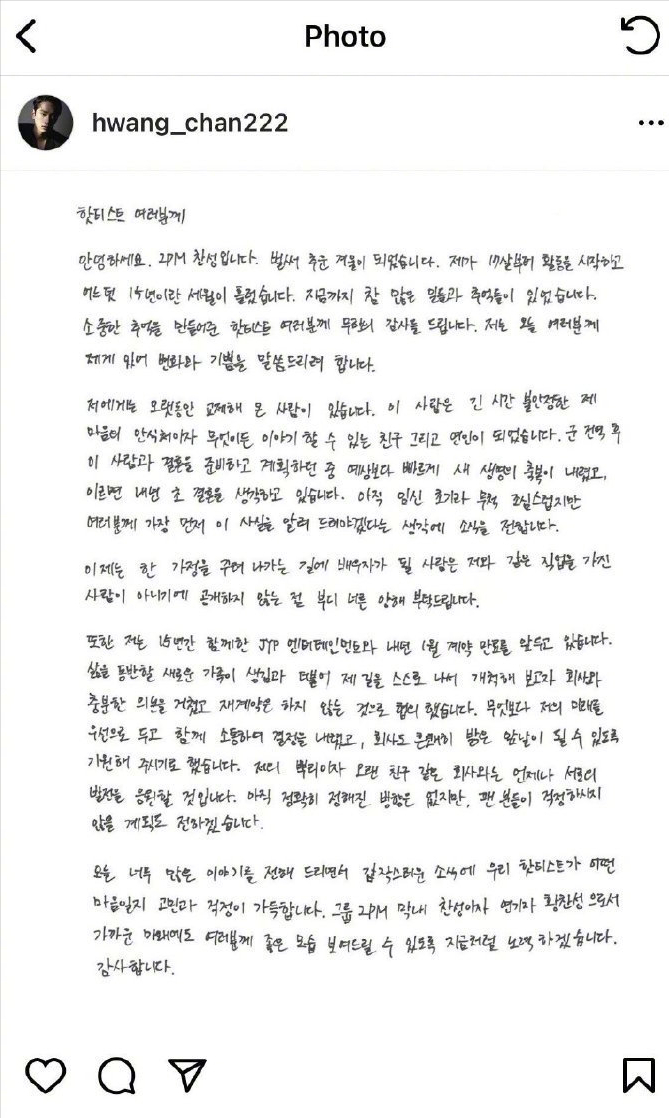 Photo
hwang_chan222
핫티스트 여러분께
안녕하세요. 2PM 찬성입니다. 벌써 추운 겨울이 되었습니다. 제가 17살부터 활동을 시작하고
어느덧 15년이란 세월이 흘렀습니다. 지금까지 참 많은 일들과 추억들이 있었습니다.
소중한 추억을 만들어준 핫티스트 여러분께 무한의 감사를 드립니다. 저는 오늘 여러분께
제게 있어 변화와 기쁨을 말씀드리려 합니다.
저에게는 오랫동안 교제해 온 사람이 있습니다. 이 사람은 긴 시간 불안정한 제
마음의 안식처이자 무엇이든 이야기 할 수 있는 친구 그리고 연인이 되었습니다. 군 전역 후
이 사람과 결혼을 준비하고 계획하던 중 예상보다 빠르게 새 생명의 축복이 내렸고,
이르면 내년 초 결혼을 생각하고 있습니다. 아직 임신 초기라 무척 조심스럽지만
여러분께 가장 먼저 이 사실을 알려 드려야겠다는 생각에 소식을 전합니다.
이제는 한 가정을 꾸려 나가는 길에 배우자가 될 사람은 저와 같은 직업을 가진
사람이 아니기에 공개하지 않는 점 부디 너른 양해 부탁드립니다.
또한 저는 15년간 함께한 JYP 엔터테인먼트와 내년 1월 계약 만료를 앞두고 있습니다.
삶을 동반할 새로운 가족이 생김과 더불어 제 길을 스스로 나서 개척해 보고자 회사와
충분한 의논을 거쳤고 재계약은 하지 않는 것으로 협의 했습니다. 무엇보다 저의 미래를
우선으로 두고 함께 소통하여 결정을 내렸고, 회사도 은 밝은 앞날이 될 수 있도록
기원해 주시기로 했습니다. 저의 뿌리이자 오랜 친구 같은 회사와는 언제나 서로의
발전을 응원할 것입니다. 아직 정확히 정해진 방향은 없지만, 팬 분들이 걱정하시지
않을 계획도 전하겠습니다.
오늘 너무 많은 이야기를 전해 드리면서 갑작스러운 소식에 우리 핫티스트가 어떤
마음일지 고민과 걱정이 가득합니다. 그룹 2PM 막내 찬성이자 연기자 황찬성 으로서
가까운 미래에도 여러분께 좋은 모습 보여드릴 수 있도록 지금처럼 노력하겠습니다.
감사합니다.